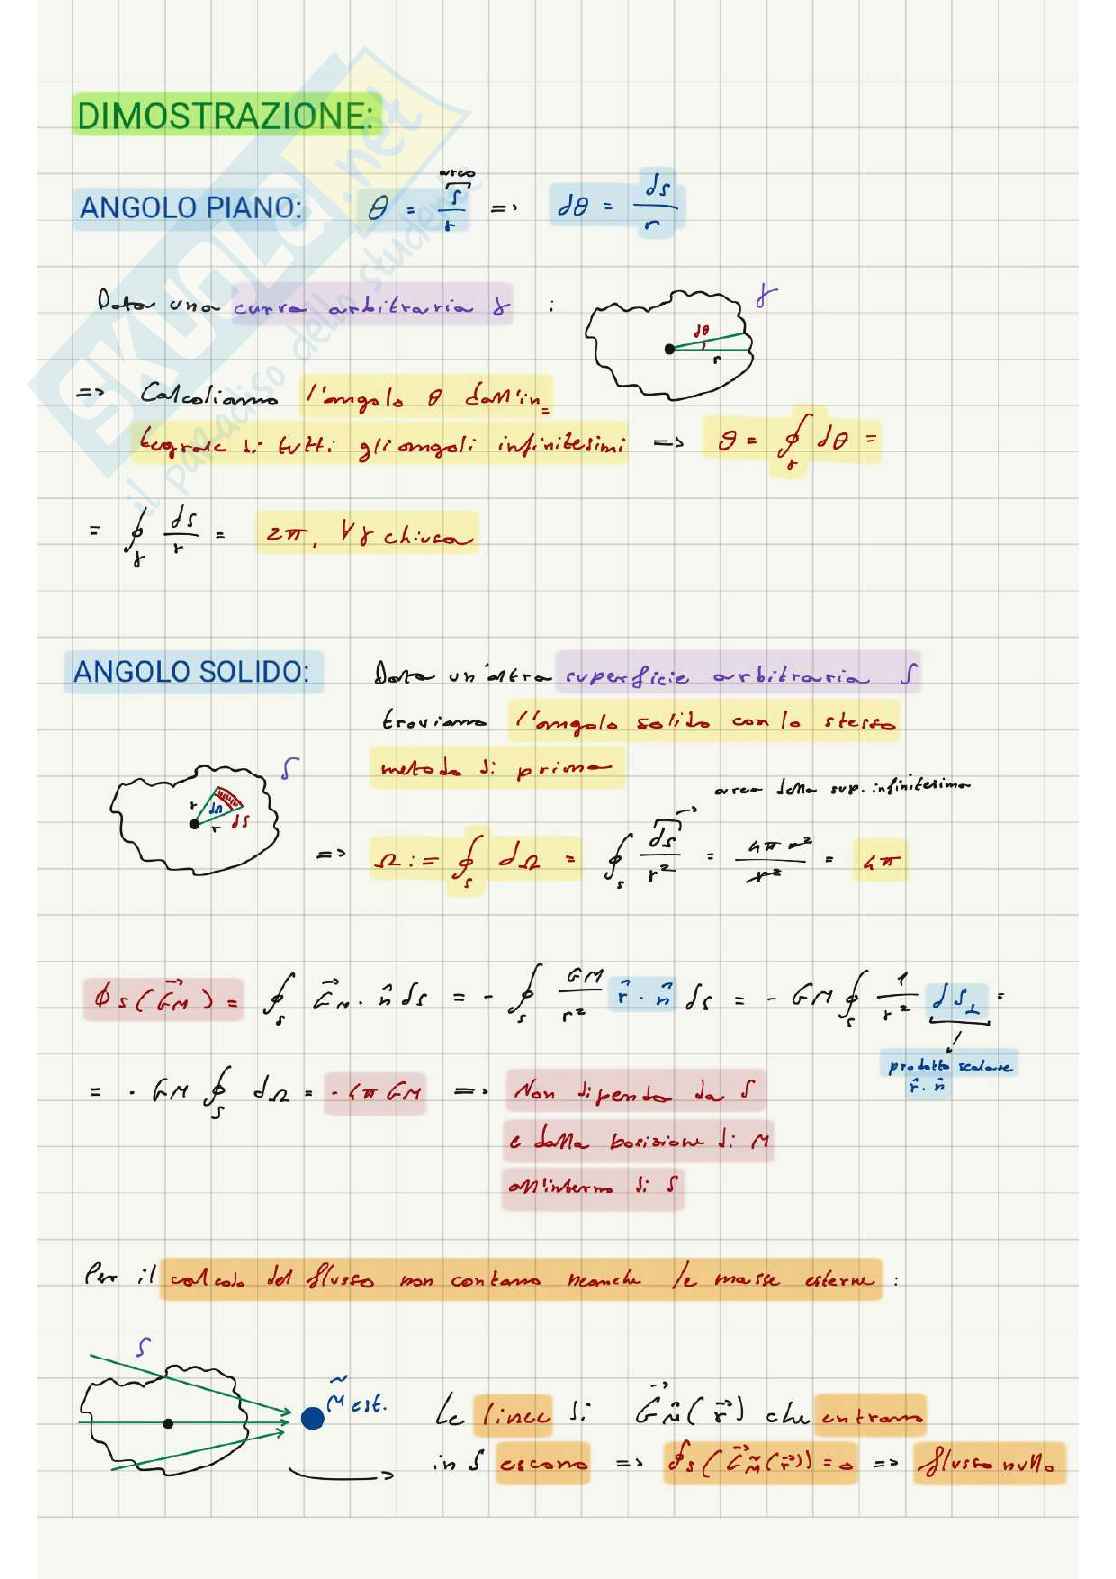 DIMOSTRAZIONE:
arco
ANGOLO PIANO: θ = s/r => dθ = ds/r
Data una curva arbitraria γ : γ
dθ
r
=> Calcoliamo l'angolo θ dall'in=
tegrale di tutti gli angoli infinitesimi => θ = ∮γ dθ =
= ∮γ ds/r = 2π, ∀γ chiusa
ANGOLO SOLIDO: Data un'altra superficie arbitraria S
troviamo l'angolo solido con lo stesso
metodo di prima
S
r dΩ dS
r
area della sup. infinitesima
=> Ω := ∮S dΩ = ∮S dS/r² = 4πr²/r² = 4π
ϕS(G⃗M) = ∮S G⃗M · n̂ dS = - ∮S GM/r² r̂ · n̂ dS = - GM ∮S 1/r² dS⊥ =
prodotto scalare
r̂ · n̂
= - GM ∮S dΩ = - 4π GM => Non dipende da S
e dalla posizione di M
all'interno di S
Per il calcolo del flusso non contano neanche le masse esterne :
S
M̃ est.
Le linee di G⃗M̃(r⃗) che entrano
in S escono => ϕS(G⃗M̃(r⃗)) = 0 => flusso nullo
SKUOLA.net
il paradiso dello studente